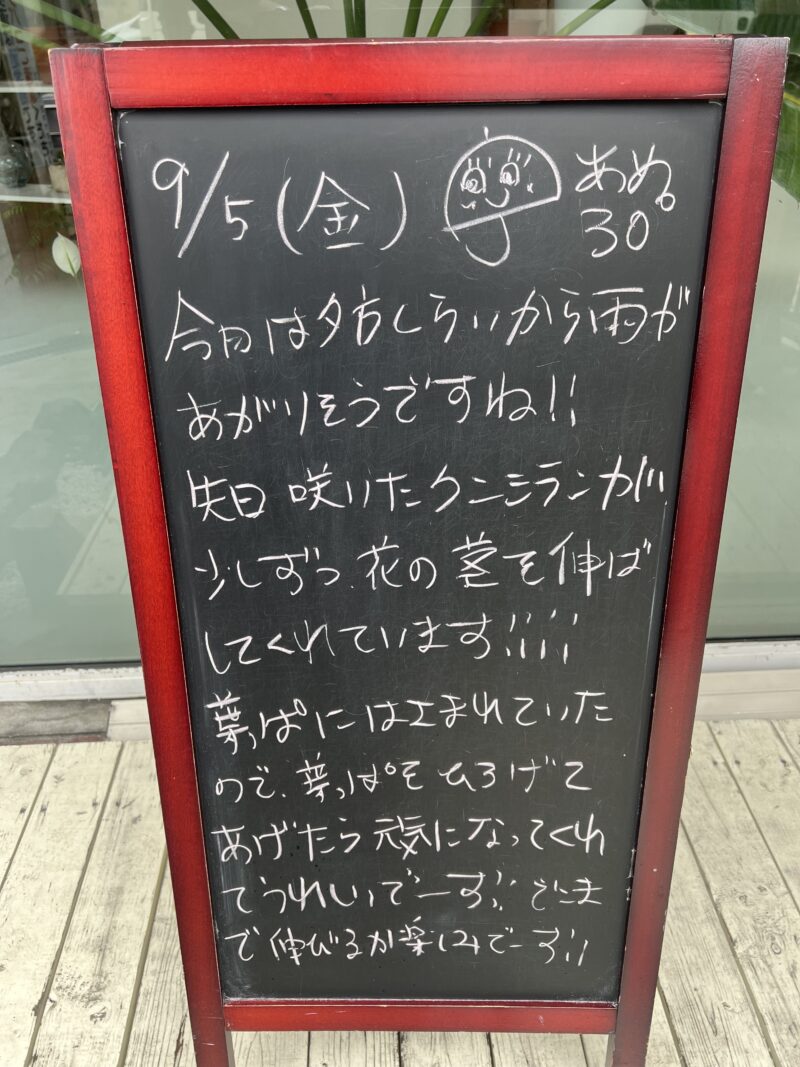 9/5(金) あめ。
30°
今日は夕方くらいから雨が
あがりそうですね!!
先日 咲いたクンシランが、
少しずつ、花の茎を伸ば
してくれています!!!!
葉っぱにはさまれていた
ので、葉っぱを ひろげて
あげたら 元気になってくれ
てうれしいでーす!! どこま
で伸びるか楽しみでーす!!